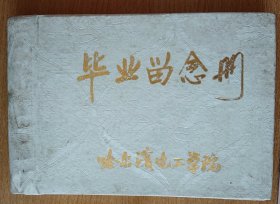 毕业留念册
哈尔滨电工学院